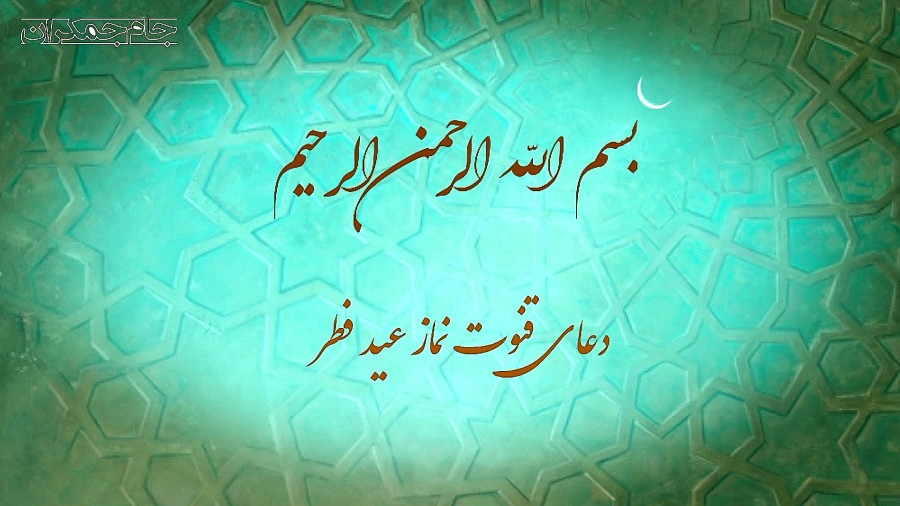 جام جمکران
بسم الله الرحمن الرحیم
دعای قنوت نماز عید فطر